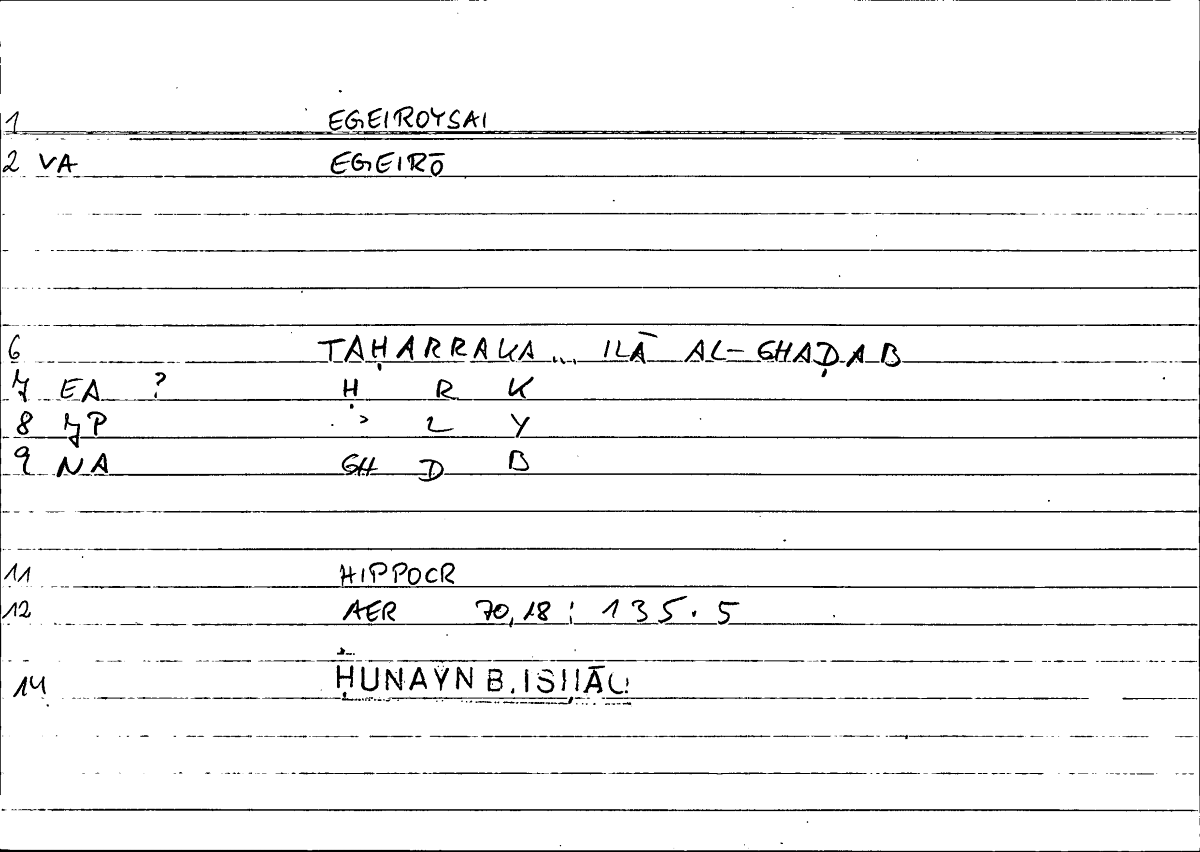 1 EGEIROYSAI
2 VA EGEIRŌ
6 TAḤARRAKA... ILĀ AL-GHAḌAB
7 EA ? Ḥ R K
8 YP ʾ L Y
9 NA GH D B
11 HIPPOCR
12 AER 70,18 : 135.5
14 ḤUNAYN B. ISḤĀQ